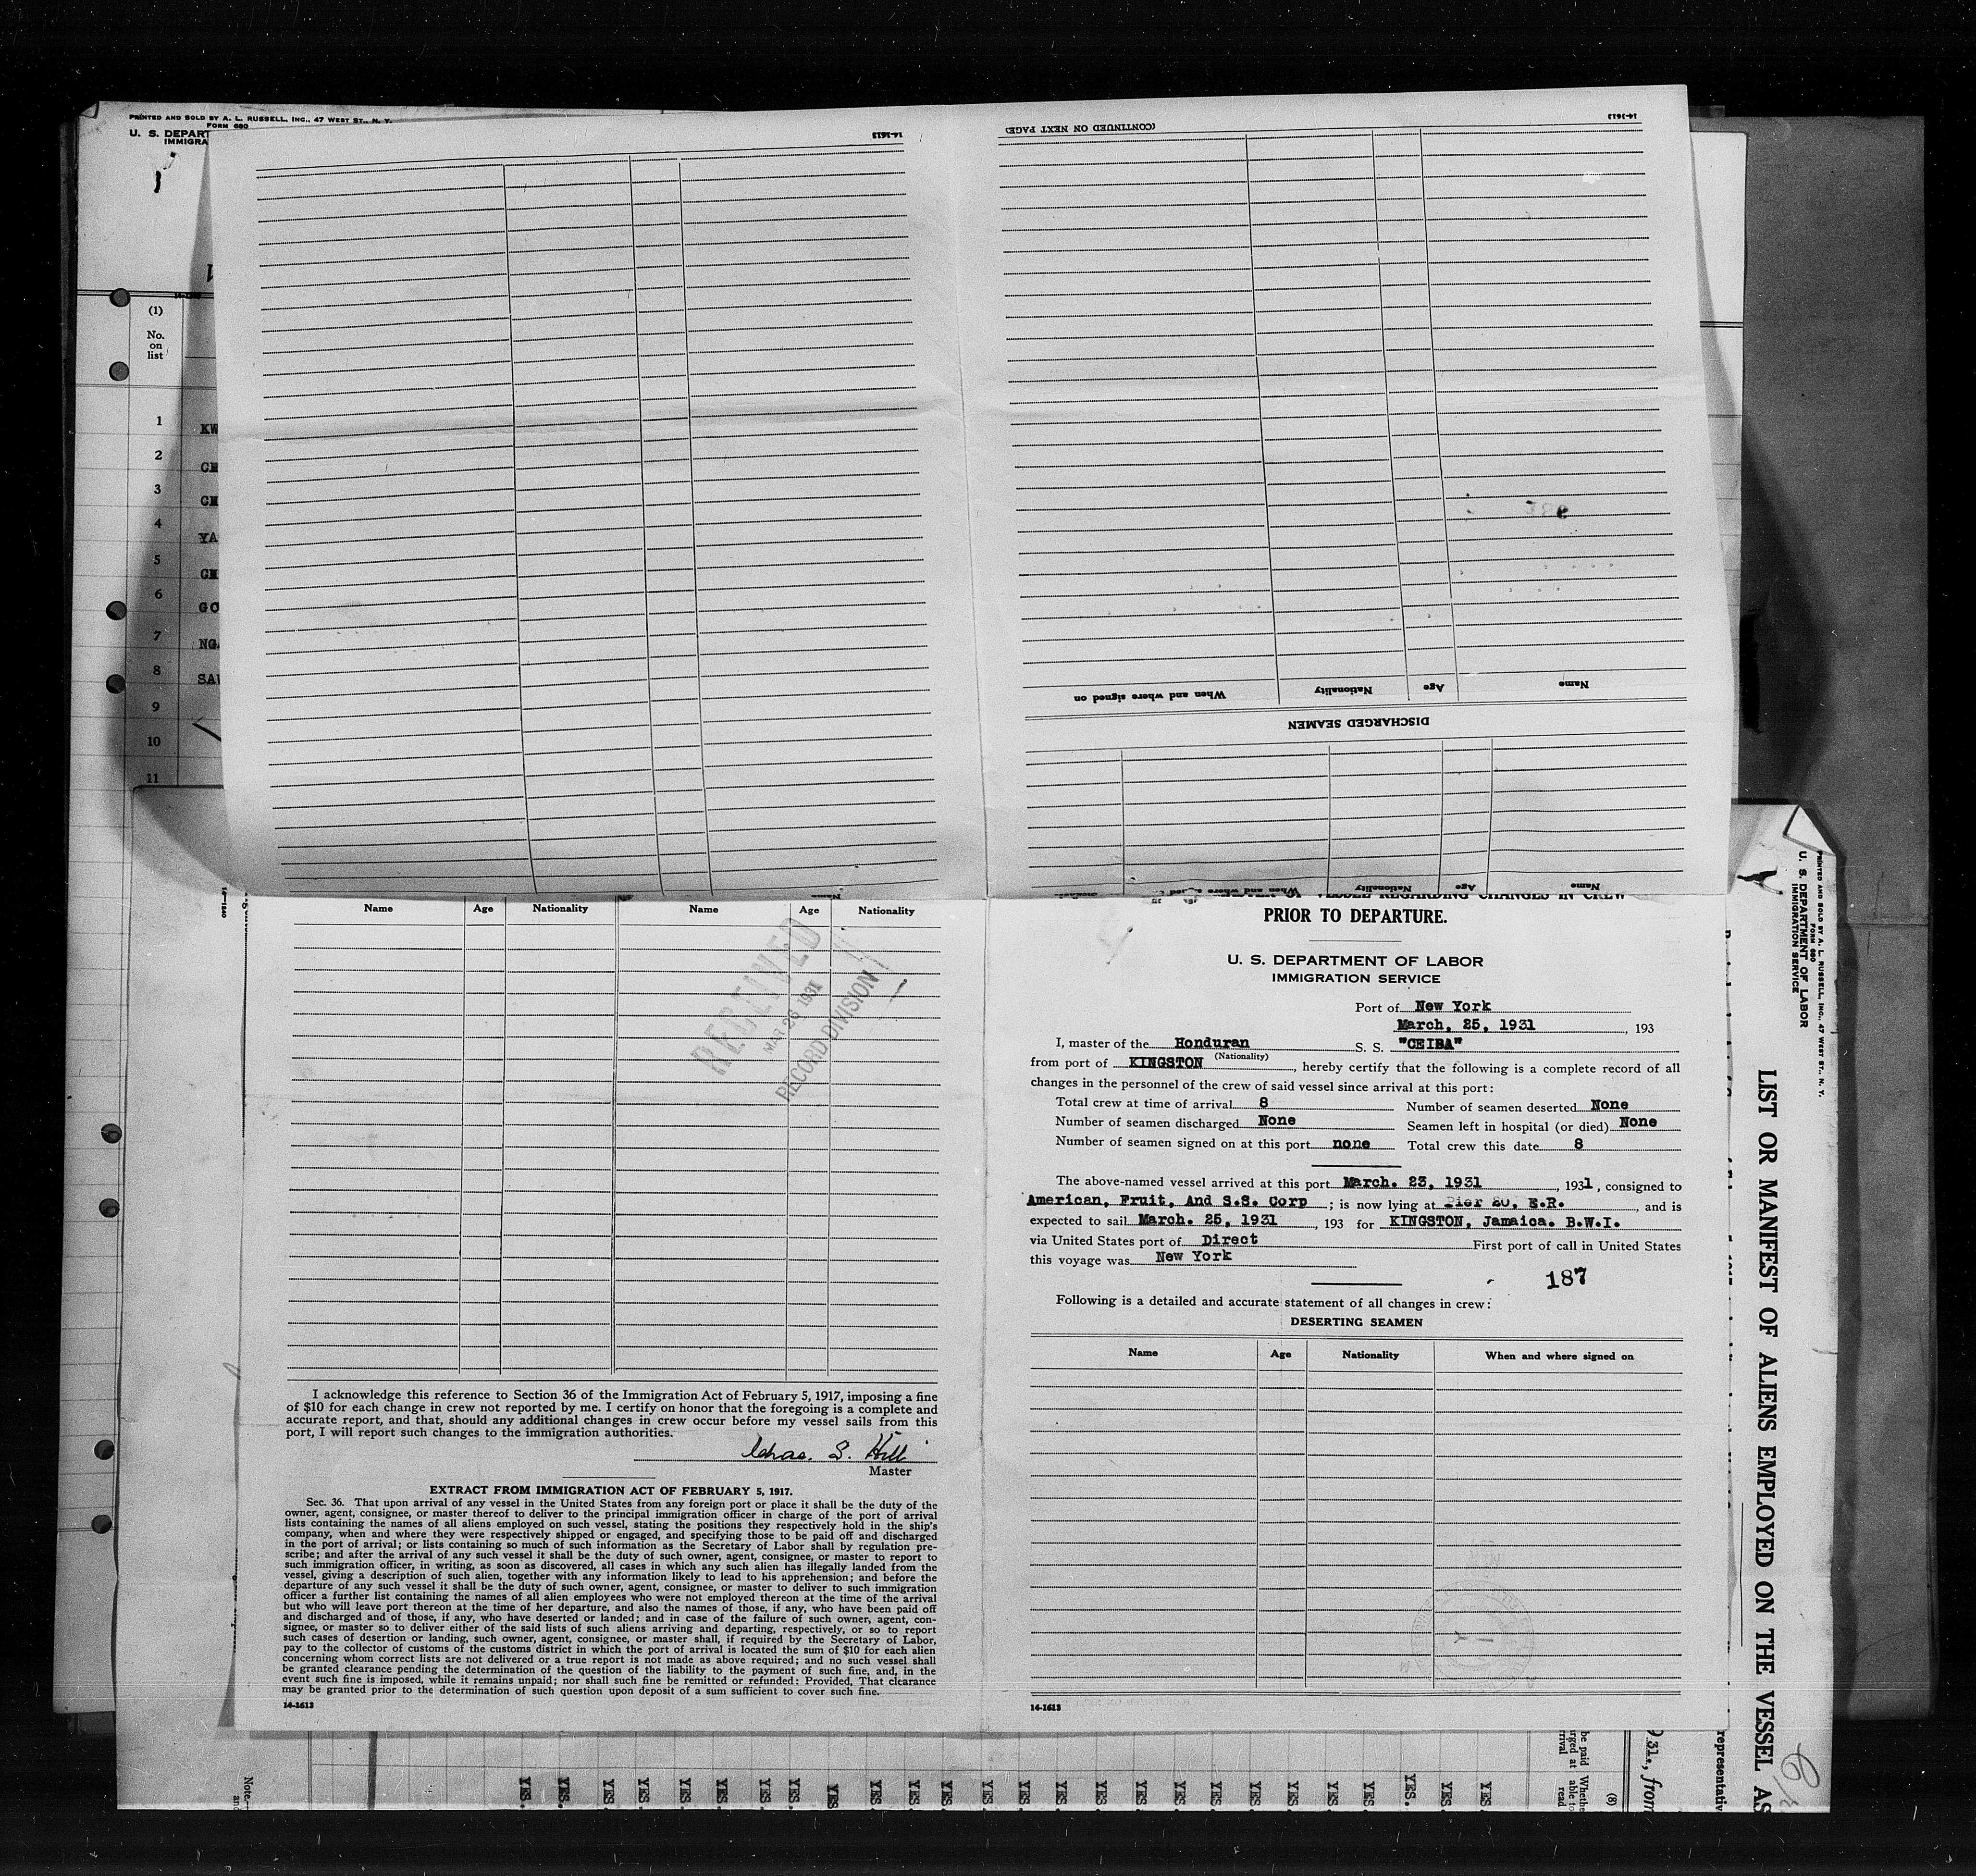 PRINTED AND SOLD BY A. L. RUSSELL, INC., 47 WEST ST., N. Y.
FORM 680
U. S. DEPART
IMMIGRA
(1)
No.
on
list
1 KW
2 CH
3 CH
4 YA
5 CH
6 GO
7 NG
8 SA
9
10
11
14-1613
(CONTINUED ON NEXT PAGE)
14-1613
Name Age Nationality When and where signed on
DISCHARGED SEAMEN
Name Age Nationality When and where signed on
Name Age Nationality Name Age Nationality
RECEIVED
MAR 26 1931
RECORD DIVISION
I acknowledge this reference to Section 36 of the Immigration Act of February 5, 1917, imposing a fine
of $10 for each change in crew not reported by me. I certify on honor that the foregoing is a complete and
accurate report, and that, should any additional changes in crew occur before my vessel sails from this
port, I will report such changes to the immigration authorities.
Chas. S. Hill
Master
EXTRACT FROM IMMIGRATION ACT OF FEBRUARY 5, 1917.
Sec. 36. That upon arrival of any vessel in the United States from any foreign port or place it shall be the duty of the
owner, agent, consignee, or master thereof to deliver to the principal immigration officer in charge of the port of arrival
lists containing the names of all aliens employed on such vessel, stating the positions they respectively hold in the ship's
company, when and where they were respectively shipped or engaged, and specifying those to be paid off and discharged
in the port of arrival; or lists containing so much of such information as the Secretary of Labor shall by regulation pre-
scribe; and after the arrival of any such vessel it shall be the duty of such owner, agent, consignee, or master to report to
such immigration officer, in writing, as soon as discovered, all cases in which any such alien has illegally landed from the
vessel, giving a description of such alien, together with any information likely to lead to his apprehension; and before the
departure of any such vessel it shall be the duty of such owner, agent, consignee, or master to deliver to such immigration
officer a further list containing the names of all alien employees who were not employed thereon at the time of the arrival
but who will leave port thereon at the time of her departure, and also the names of those, if any, who have been paid off
and discharged and of those, if any, who have deserted or landed; and in case of the failure of such owner, agent, con-
signee, or master so to deliver either of the said lists of such aliens arriving and departing, respectively, or so to report
such cases of desertion or landing, such owner, agent, consignee, or master shall, if required by the Secretary of Labor,
pay to the collector of customs of the customs district in which the port of arrival is located the sum of $10 for each alien
concerning whom correct lists are not delivered or a true report is not made as above required; and no such vessel shall
be granted clearance pending the determination of the question of the liability to the payment of such fine, and, in the
event such fine is imposed, while it remains unpaid; nor shall such fine be remitted or refunded: Provided, That clearance
may be granted prior to the determination of such question upon deposit of a sum sufficient to cover such fine.
14-1613
VESSEL REGARDING CHANGES IN CREW
PRIOR TO DEPARTURE.
U. S. DEPARTMENT OF LABOR
IMMIGRATION SERVICE
Port of New York
March, 25, 1931, 193
I, master of the Honduran S. S. "CEIBA"
(Nationality)
from port of KINGSTON, hereby certify that the following is a complete record of all
changes in the personnel of the crew of said vessel since arrival at this port:
Total crew at time of arrival 8 Number of seamen deserted None
Number of seamen discharged None Seamen left in hospital (or died) None
Number of seamen signed on at this port none Total crew this date 8
The above-named vessel arrived at this port March. 23, 1931, 1931, consigned to
American, Fruit, And S.S. Corp; is now lying at Pier 20, E.R., and is
expected to sail March. 25, 1931, 193 for KINGSTON, Jamaica. B.W.I.
via United States port of Direct First port of call in United States
this voyage was New York
187
Following is a detailed and accurate statement of all changes in crew:
DESERTING SEAMEN
Name Age Nationality When and where signed on
14-1613
PRINTED AND SOLD BY A. L. RUSSELL, INC., 47 WEST ST., N. Y.
FORM 680
U. S. DEPARTMENT OF LABOR
IMMIGRATION SERVICE
LIST OR MANIFEST OF ALIENS EMPLOYED ON THE VESSEL AS
representativ
31., from
(8)
Whethe
able to
read
be paid
rged at
rrival
YES. YES. YES. YES. YES. YES. YES. YES. YES. YES. YES. YES. YES. YES. YES. YES. YES. YES. YES. YES. YES. YES. YES. YES. YES.
Note.—
an
14-1240